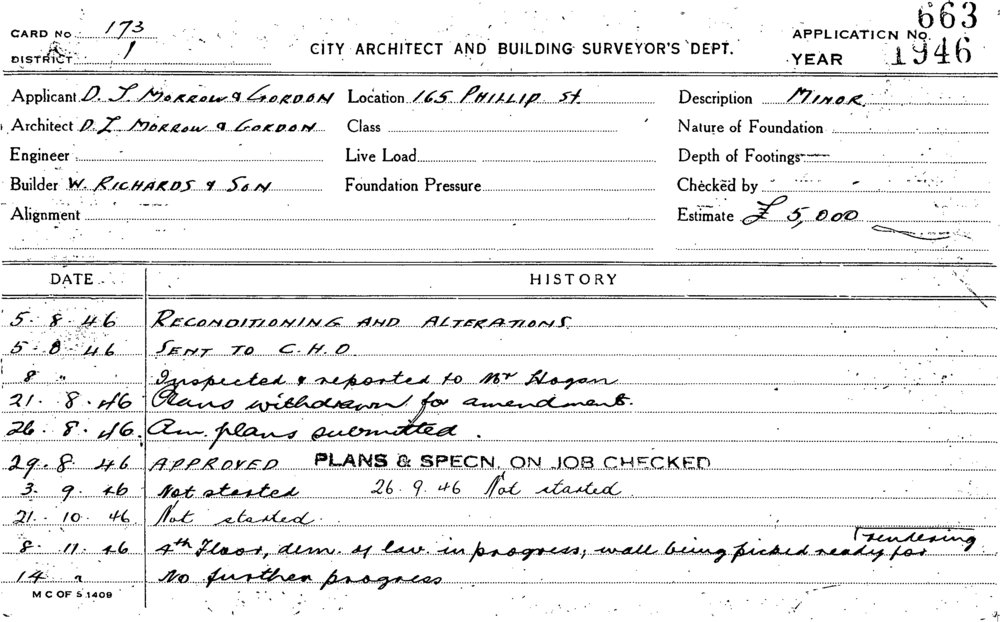 CARD No 173
DISTRICT 1
CITY ARCHITECT AND BUILDING SURVEYOR'S DEPT.
APPLICATION No. 663
YEAR 1946
Applicant D. T MORROW & GORDON Location 165 PHILLIP St. Description MINOR.
Architect D. T. MORROW & GORDON Class Nature of Foundation
Engineer Live Load Depth of Footings
Builder W. RICHARDS & SON Foundation Pressure Checked by
Alignment Estimate £ 5,000
DATE HISTORY
5 · 8 · 46 RECONDITIONING AND ALTERATIONS.
5 · 8 · 46 SENT TO C.H.O.
8 " Inspected & reported to Mr Hogan
21 · 8 · 46 Plans withdrawn for amendment.
26 · 8 · 46. Am. plans submitted.
29 · 8 · 46 APPROVED PLANS & SPECN. ON JOB CHECKED
3 · 9 · 46 Not started 26 · 9 · 46 Not started
21 · 10 · 46 Not started.
8 · 11 · 46 4th Floor, dem. of lav. in progress, wall being picked ready for rendering
14 " No further progress
M C OF S 1409